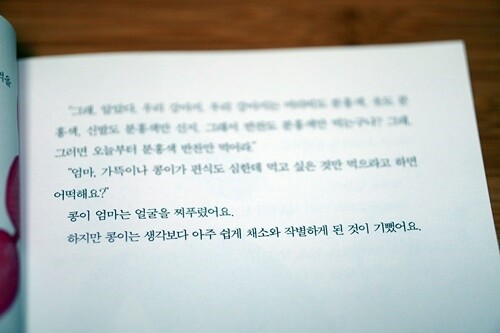 "그래, 알았다. 우리 강아지. 우리 강아지는 머리띠도 분홍색, 옷도 분
홍색, 신발도 분홍색만 신지. 그래서 반찬도 분홍색만 먹는구나? 그래,
그러면 오늘부터 분홍색 반찬만 먹어라."
"엄마, 가뜩이나 콩이가 편식도 심한데 먹고 싶은 것만 먹으라고 하면
어떡해요?"
콩이 엄마는 얼굴을 찌푸렸어요.
하지만 콩이는 생각보다 아주 쉽게 채소와 작별하게 된 것이 기뻤어요.